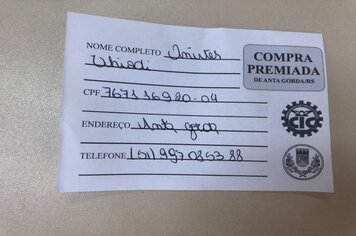 NOME COMPLETO Inirtes
COMPRA
PREMIADA
DE ANTA GORDA/RS
CPF 767116920-04
ENDEREÇO Anta gorda
CIC
TELEFONE (51) 997085388